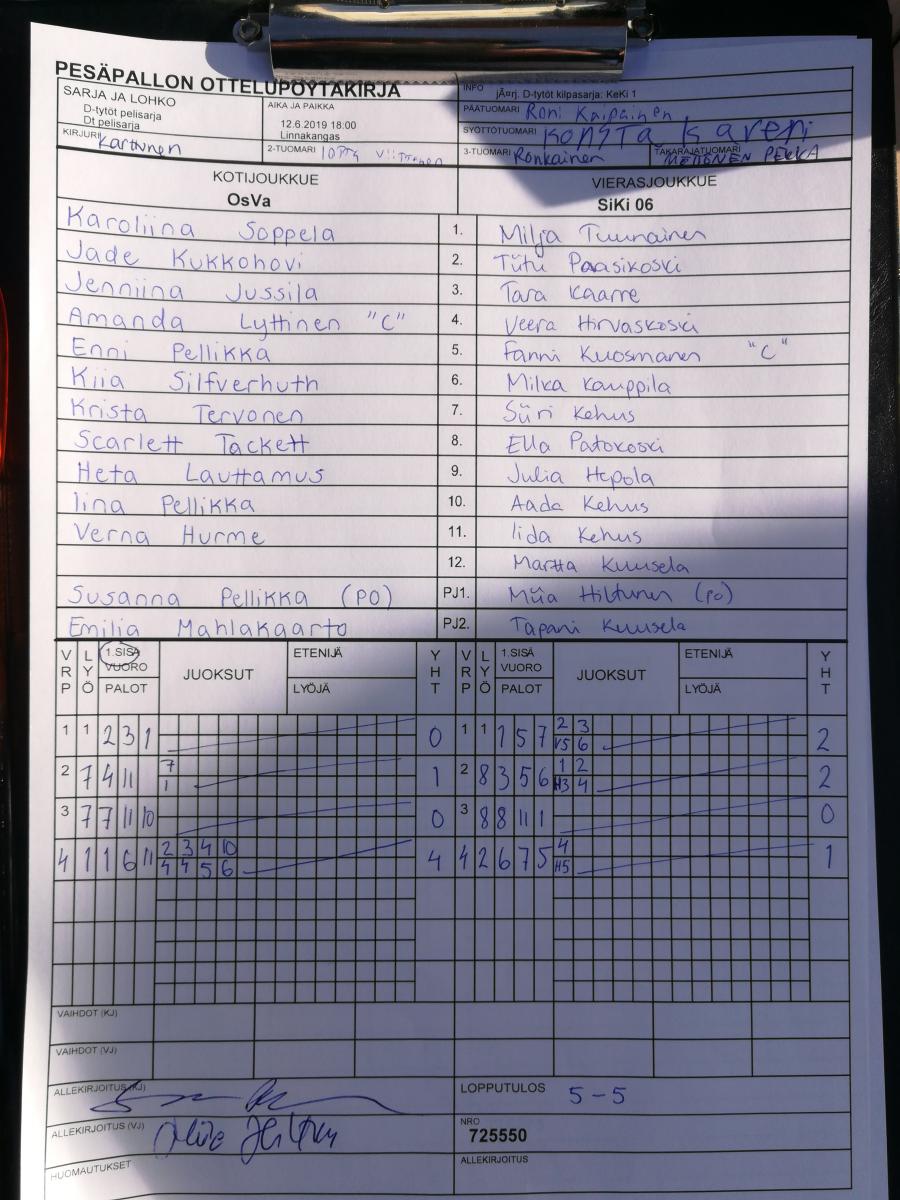 PESÄPALLON OTTELUPÖYTÄKIRJA
SARJA JA LOHKO
D-tytöt pelisarja
Dt pelisarja
KIRJURI Karttunen
AIKA JA PAIKKA
12.6.2019 18:00
Linnakangas
2-TUOMARI
INFO jÃ¤rj. D-tytöt kilpasarja: KeKi 1
PÄÄTUOMARI Roni Kaipainen
SYÖTTÖTUOMARI Konsta Kareni
3-TUOMARI Ronkainen
TAKARAJATUOMARI PEKKA
KOTIJOUKKUE VIERASJOUKKUE
OsVa SiKi 06
Karoliina Soppela 1. Milja Tuunainen
Jade Kukkohovi 2. Tiitu Paasikoski
Jenniina Jussila 3. Tara Kaarre
Amanda Lyttinen "C" 4. Veera Hirvaskoski
Enni Pellikka 5. Fanni Kuosmanen "C"
Kiia Silfverhuth 6. Milka Kauppila
Krista Tervonen 7. Siiri Kehus
Scarlett Tackett 8. Ella Patokoski
Heta Lauttamus 9. Julia Hepola
Iina Pellikka 10. Aada Kehus
Verna Hurme 11. Iida Kehus
12. Martta Kuusela
Susanna Pellikka (PO) PJ1. Miia Hiltunen (PO)
Emilia Mahlakaarto PJ2. Tapani Kuusela
VRP LYÖ 1.SISÄ VUORO PALOT JUOKSUT ETENIJÄ LYÖJÄ YHT VRP LYÖ 1.SISÄ VUORO PALOT JUOKSUT ETENIJÄ LYÖJÄ YHT
1 1 2 3 1 0 1 1 1 5 7 2 3 2
V5 6
2 7 4 11 7 1 2 8 3 5 6 1 2 2
1 H3 4
3 7 7 11 10 0 3 8 8 11 1 0
4 1 1 6 11 2 3 4 10 4 4 2 6 7 5 4 1
4 4 5 6 H5
VAIHDOT (KJ)
VAIHDOT (VJ)
ALLEKIRJOITUS (KJ) LOPPUTULOS 5-5
ALLEKIRJOITUS (VJ) NRO
725550
HUOMAUTUKSET ALLEKIRJOITUS